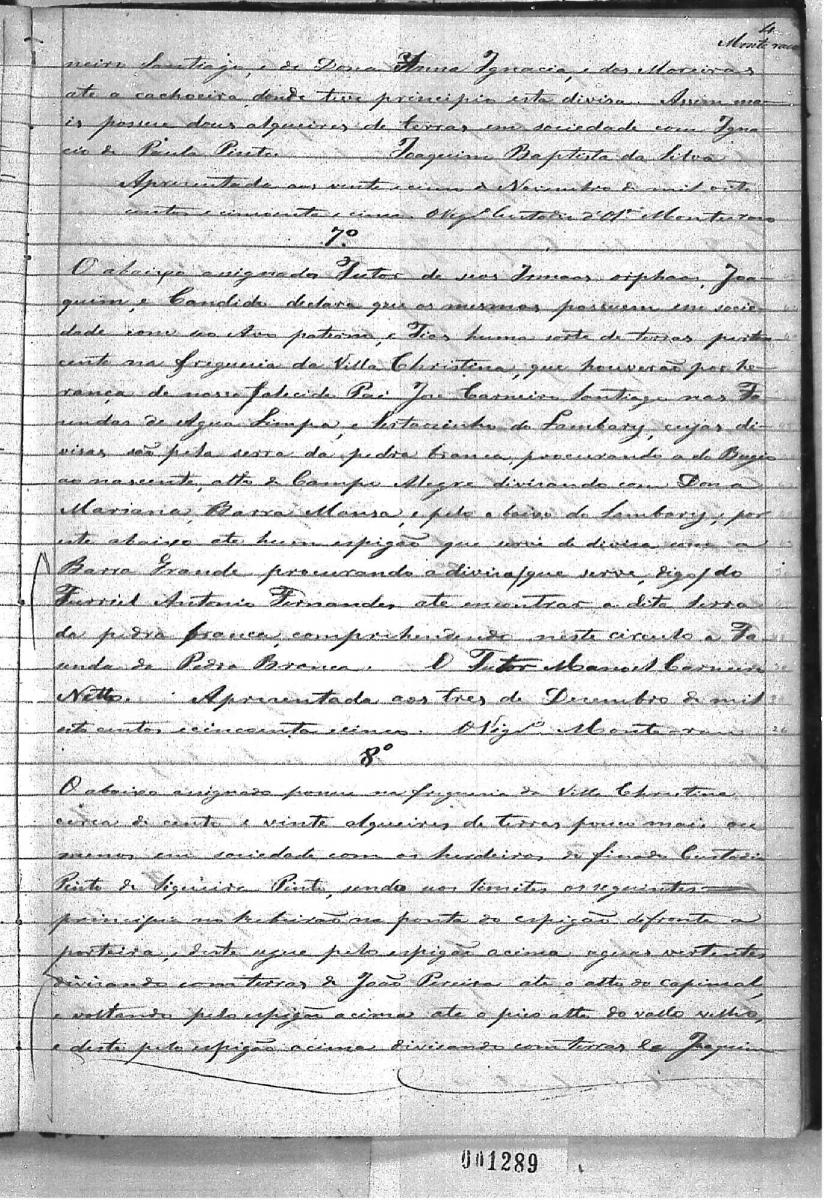 4
Monte raso
neiro Santiago, e de Dona Anna Ignacia, e dos Moreiras
ate a cachoeira, donde teve principio esta divisa. Assim ma-
is possue dous alqueires de terras em sociedade com Igna
cio de Paula Pinto. Joaquim Baptista da Silva
Apresentada aos vinte e cinco de Novembro de mil oito
centos e cincoenta e cinco. O Vigr.º Custodio d'Olr.ª Monte raso
7º
O abaixo assignado Tutor de seos Irmaos orphaos, Joa-
quim, e Candido declara que os mesmos possuem em socie-
dade com ao Avo paterno, e Tios huma sorte de terras perten
cente na freguesia da Villa Christina, que houverão por he-
rança de nosso falecido Pai José Carneiro Santiago nas Fa-
sendas de Agua Limpa, e Sertaosinho do Lambary, cujas di-
visas são pela serra da pedra branca, procurando a do Bugio
ao nascente, alto do Campo Alegre divisando com Dona
Mariana, Barra Mansa, e pelo abaixo do Lambary, e por
este abaixo ate hum espigão que serve de divisa com a
Barra Grande procurando a divisa (que serve, digo) do
Furriel Antonio Fernandes, ate encontrar a dita serra
da pedra branca, comprehendendo neste circulo a Fa-
senda da Pedra Branca. O Tutor Manoel Carneiro
Netto. Apresentada aos tres de Dezembro de mil
oito centos e cincoenta e cinco. O Vigr.º Monte raso
8º
O abaixo assignado possue na freguesia da Villa Christina
cerca de cento e vinte alqueires de terras pouco mais ou
menos em sociedade com os herdeiros do finado Custodio
Pinto de Siqueira Pinto, sendo nos limites os seguintes
principia no ribeirão na ponta do espigão defronte a
porteira, e deste segue pelo espigão acima aguas vertentes
divisando com terras de João Pereira ate o alto do capinsal,
e voltando pelo espigão acima ate o pico alto do vallo velho,
e deste pelo espigão acima divisando com terras de Joaquim
001289